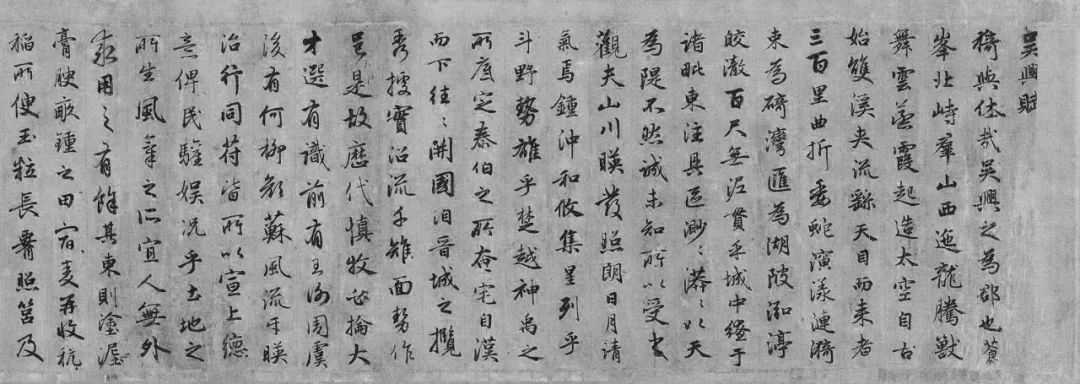 吳興賦
猗與休哉吳興之為郡也蒼
峯北峙羣山西迤龍騰獸
舞雲蒸霞起造太空自古
始雙溪夾流繇天目而来者
三百里曲折委蛇演漾漣漪
束為碕灣匯為湖陂泓渟
皎澈百尺無泥貫乎城中繚于
諸毗東注具區渺〻漭〻以天
為隄不然誠未知所以受之
觀夫山川暎發照朗日月清
氣焉鍾沖和攸集星列乎
斗野勢雄乎楚越神禹之
所底定泰伯之所奄宅自漢
而下往〻開國洎晉城之攬
秀據實沿流千雉面勢作
邑是故歷代慎牧必掄大
才選有識前有王謝周虞
後有何柳顏蘇風流互暎
治行同符皆所以宣上德
意俾民驩娛况乎土地之
所生風氣之所宜人無外
求用之有餘其東則塗泥
膏腴畝鍾之田宿麦再收秔
稲所便玉粒長腰照筥及